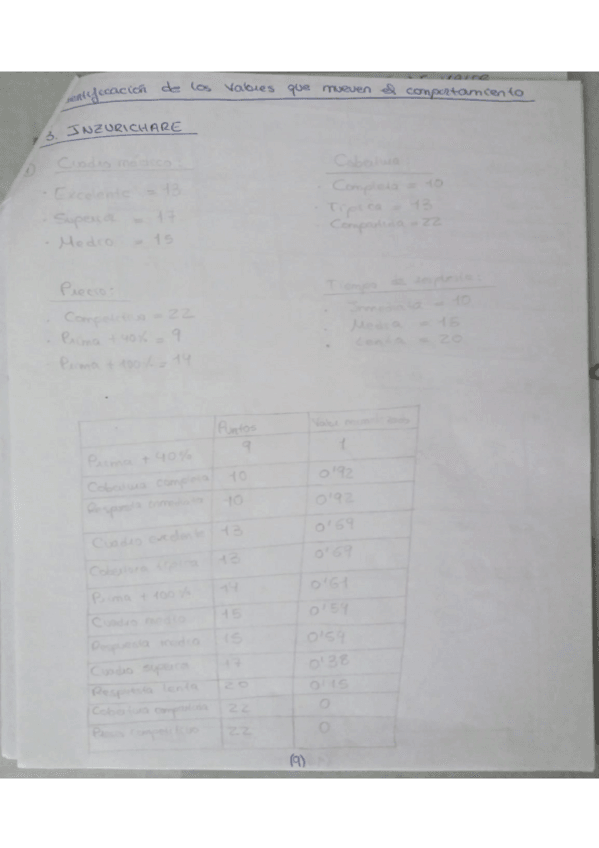 de los valores que mueven el comportamiento
3. INZURICHARE
1) Cuadro médico:
Cobertura:
· Excelente = 13
· Completa = 10
· Superior = 17
· Típica = 13
· Medio = 15
Compartida = 22
Precio:
Tiempo de respuesta:
· Competitivo = 22
· Inmediata = 10
· Prima + 40% = 9
· Media = 15
Prima + 100% = 14
· Lenta = 20
Puntos Valor
Prima + 40% 9 1
Cobertura completa 10 0'92
Respuesta inmediata 10 0'92
Cuadro excelente 13 0'69
Cobertura típica 13 0'69
Prima + 100% 14 0'61
Cuadro medio 15
Respuesta media 15
Cuadro superior 17 0'38
Respuesta lenta 20 0'15
Cobertura compartida 22 0
Precio competitivo 22 0
(9)